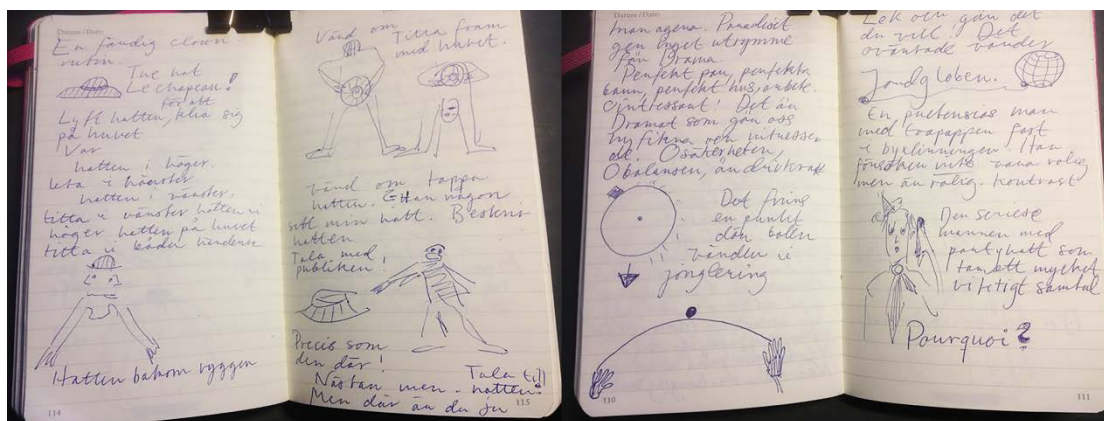 Datum / Date
En färdig clown
rutin.
Le chapeau!
för att
Lyft hatten, klia sig
på huvet
Var
hatten i höger.
leta i vänster
hatten i vänster.
titta i vänster hatten i
höger hatten på huvet
titta i båda händerna
Hatten bakom ryggen
114
Vänd om
Titta fram
med huvet.
vänd om tappa
hatten. Har någon
sett min hatt. Beskriv
hatten
Tala med
publiken!
Precis som
den där!
Tala till
Nästan men. hatten!
Men där är du ju
115
Datum / Date
man agera. Paradiset
ger inget utrymme
för Drama.
Perfekt par, perfekta
barn, perfekt hus, arbete.
Ointressant! Det är
Dramat som gör oss
nyfikna och
Osäkerheten,
Obalansen, är drivkraft
Det finns
en punkt
där bollen
vänder i
jonglering
110
Lek och gör det
du vill! Det
oväntade vänder
Jordgloben.
En man
med toapapper fast
i byxlinningen. Han
försöker inte vara rolig
men är rolig. kontrast
Den seriöse
mannen med
partyhatt som
tar ett mycket
viktigt samtal
Pourquoi?
111